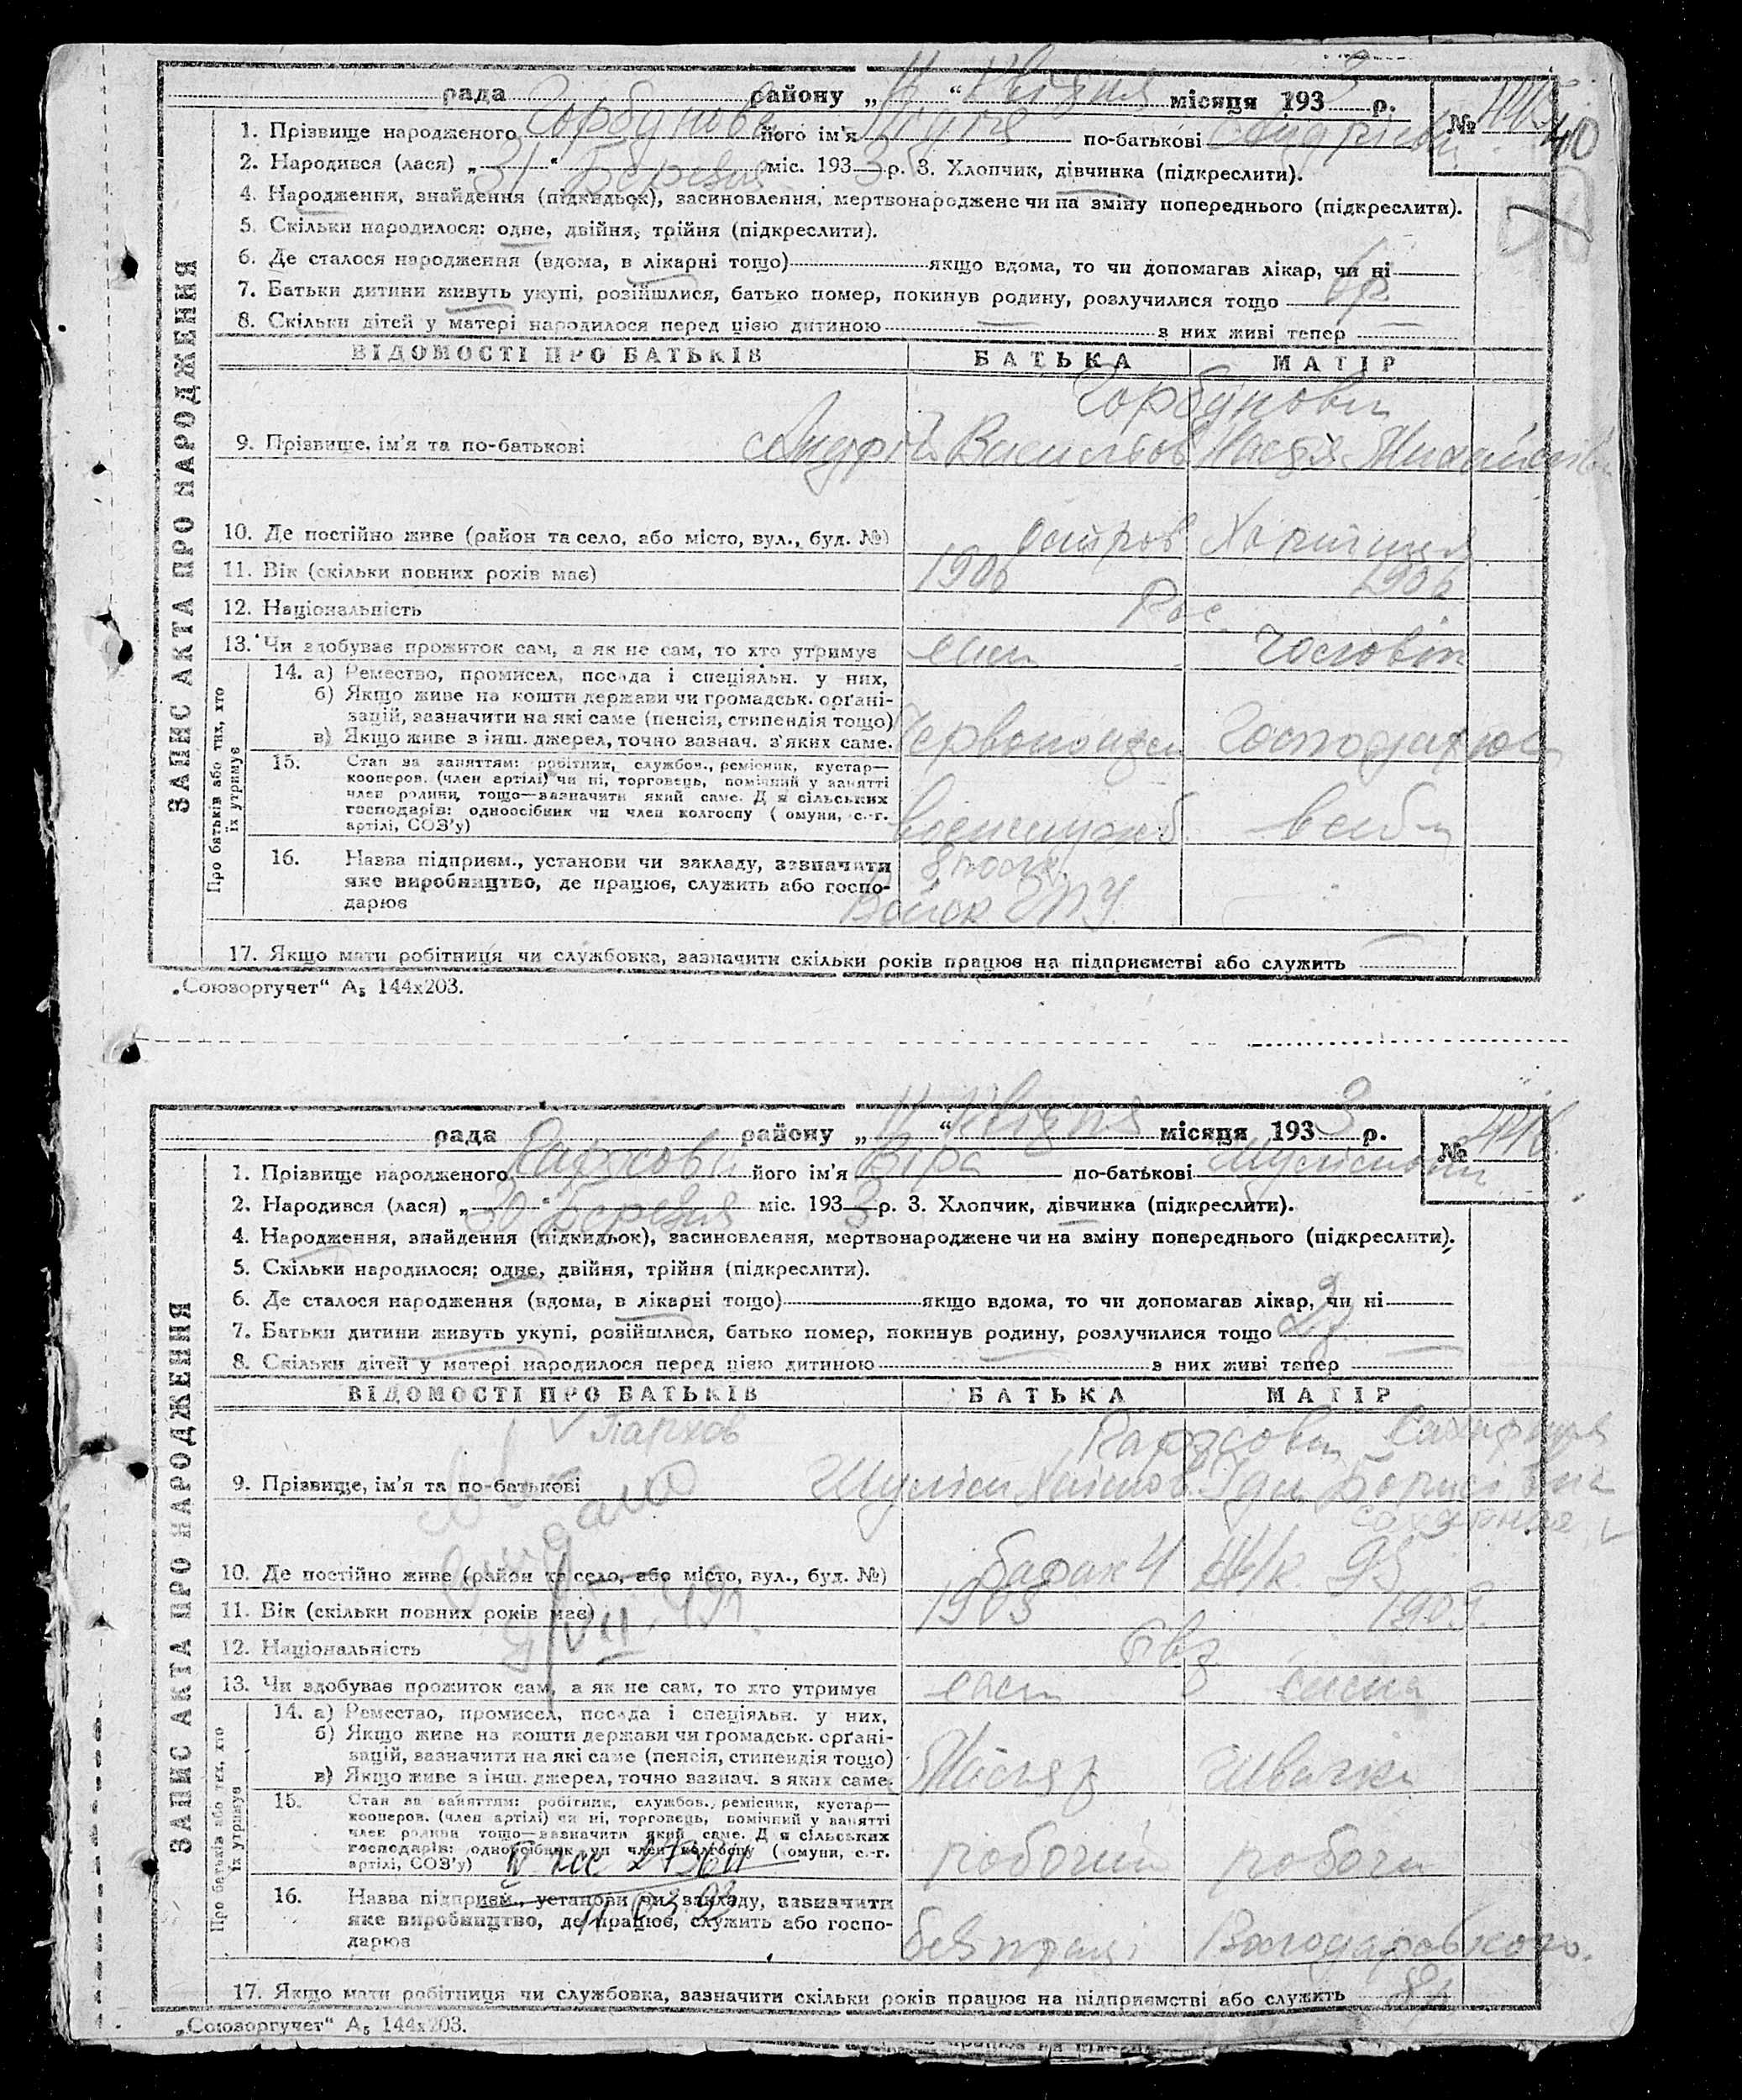 рада района „11“ Квітня місяця 1933 р.
№ 445
40
1. Прізвище народженого Горбунова його ім'я Лідія по-батькові Андріївн
2. Народився (лася) „31“ Березня міс. 1933 р. 3. Хлопчик, дівчинка (підкреслити).
4. Народження, знайдення (підкидьок), засиновлення, мертвонароджене чи на зміну попереднього (підкреслити).
5. Скільки народилося: одне, двійня, трійня (підкреслити).
6. Де сталося народження (вдома, в лікарні тощо) якщо вдома, то чи допомагав лікар, чи ні
7. Батьки дитини живуть укупі, розійшлися, батько помер, покинув родину, розлучилися тощо
8. Скільки дітей у матері народилося перед цією дитиною — з них живі тепер —
ЗАПИС АКТА ПРО НАРОДЖЕННЯ
ВІДОМОСТІ ПРО БАТЬКІВ БАТЬКА МАТІР
Горбунови
9. Прізвище, ім'я та по-батькові Андрій Васильов Настя Михайлівн
10. Де постійно живе (район та село, або місто, вул., буд. №) острів Хортиця
11. Вік (скільки повних років має) 1906 1906
12. Національність Рос.
13. Чи здобуває прожиток сам, а як не сам, то хто утримує сам чоловік
Про батьків або тих, хто їх утримує
14. а) Ремество, промисел, посада і спеціяльн. у них,
б) Якщо живе на кошти держави чи громадськ. орґані-
зацій, зазначити на які саме (пенсія, стипендія тощо)
в) Якщо живе з інш. джерел, точно зазнач. з яких саме.
15. Стан за заняттям: робітник, службов., ремісник, кустар—
кооперов. (член артілі) чи ні, торговець, помічний у занятті
член родини, тощо—зазначити який саме. Для сільських
господарів: одноосібник чи член колгоспу (комуни, с.-г.
артілі, СОЗ'у)
16. Назва підприєм., установи чи закладу, зазначити
яке виробництво, де працює, служить або госпо-
дарює
Войск ГПУ
17. Якщо мати робітниця чи службовка, зазначити скільки років працює на підприємстві або служить —
„Союзоргучет“ А₅ 144х203.
рада району „11“ Квітня місяця 1933 р.
№ 446
1. Прізвище народженого його ім'я Віра по-батькові
2. Народився (лася) „30“ Березня міс. 1933 р. 3. Хлопчик, дівчинка (підкреслити).
4. Народження, знайдення (підкидьок), засиновлення, мертвонароджене чи на зміну попереднього (підкреслити).
5. Скільки народилося; одне, двійня, трійня (підкреслити).
6. Де сталося народження (вдома, в лікарні тощо) якщо вдома, то чи допомагав лікар, чи ні
7. Батьки дитини живуть укупі, розійшлися, батько помер, покинув родину, розлучилися тощо
8. Скільки дітей у матері народилося перед цією дитиною з них живі тепер —
ЗАПИС АКТА ПРО НАРОДЖЕННЯ
ВІДОМОСТІ ПРО БАТЬКІВ БАТЬКА МАТІР
9. Прізвище, ім'я та по-батькові Борисівна
10. Де постійно живе (район та село, або місто, вул., буд. №) барак 4 95
11. Вік (скільки повних років має) 1905 1909
VII
12. Національність Євр
13. Чи здобуває прожиток сам, а як не сам, то хто утримує сам сама
Про батьків або тих, хто їх утримує
14. а) Ремество, промисел, посада і спеціяльн. у них,
б) Якщо живе на кошти держави чи громадськ. орґані-
зацій, зазначити на які саме (пенсія, стипендія тощо)
в) Якщо живе з інш. джерел, точно зазнач. з яких саме.
швачка
15. Стан за заняттям: робітник, службов., ремісник, кустар—
кооперов. (член артілі) чи ні, торговець, помічний у занятті
член родини тощо—зазначити який саме. Для сільських
господарів: одноосібник чи член колгоспу (комуни, с.-г.
артілі, СОЗ'у)
робочий робоча
16. Назва підприєм., установи чи закладу, зазначити
яке виробництво, де працює, служить або госпо-
дарює
без праці Володарського
17. Якщо мати робітниця чи службовка, зазначити скільки років працює на підприємстві або служить
„Союзоргучет“ А₅ 144х203.